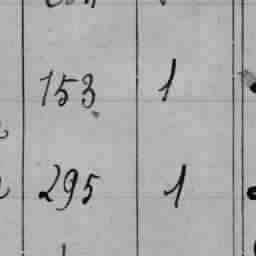 153 1
295 1